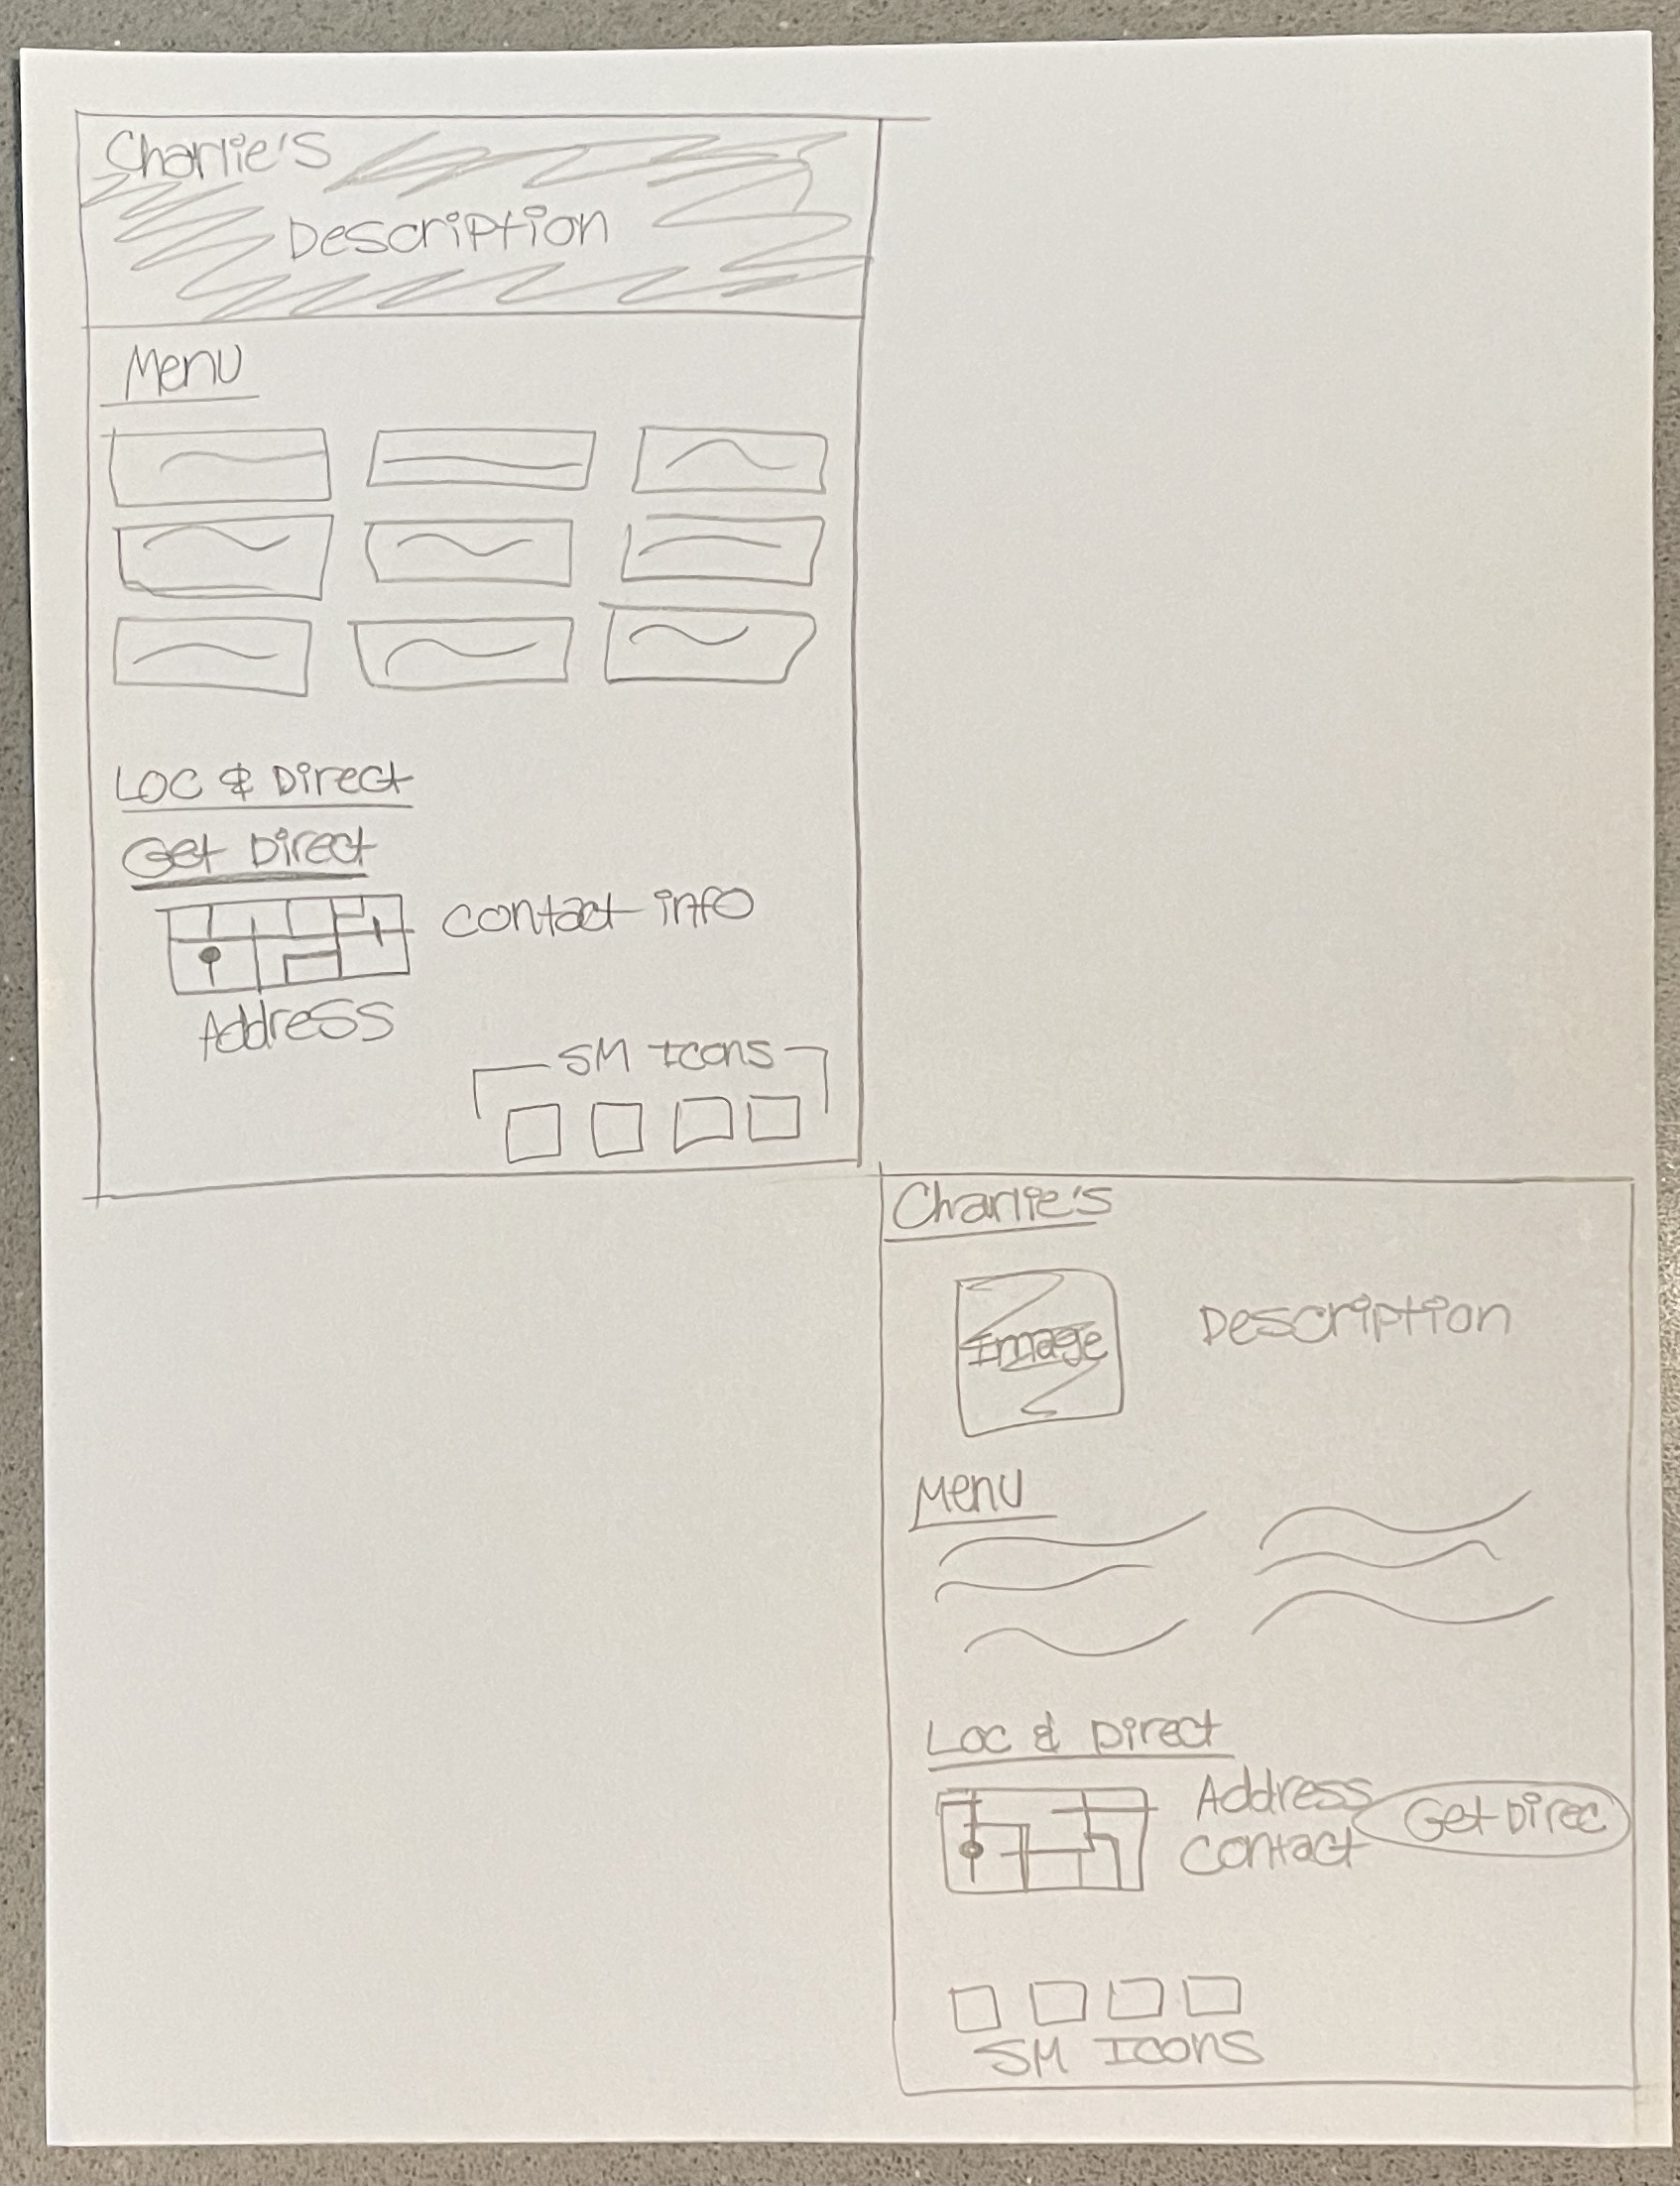 Charlie's
Description
Menu
Loc & Direct
Get Direct
Contact info
Address
SM Icons
Charlie's
Image
Description
Menu
Loc & Direct
Address
Get Direc
Contact
SM Icons